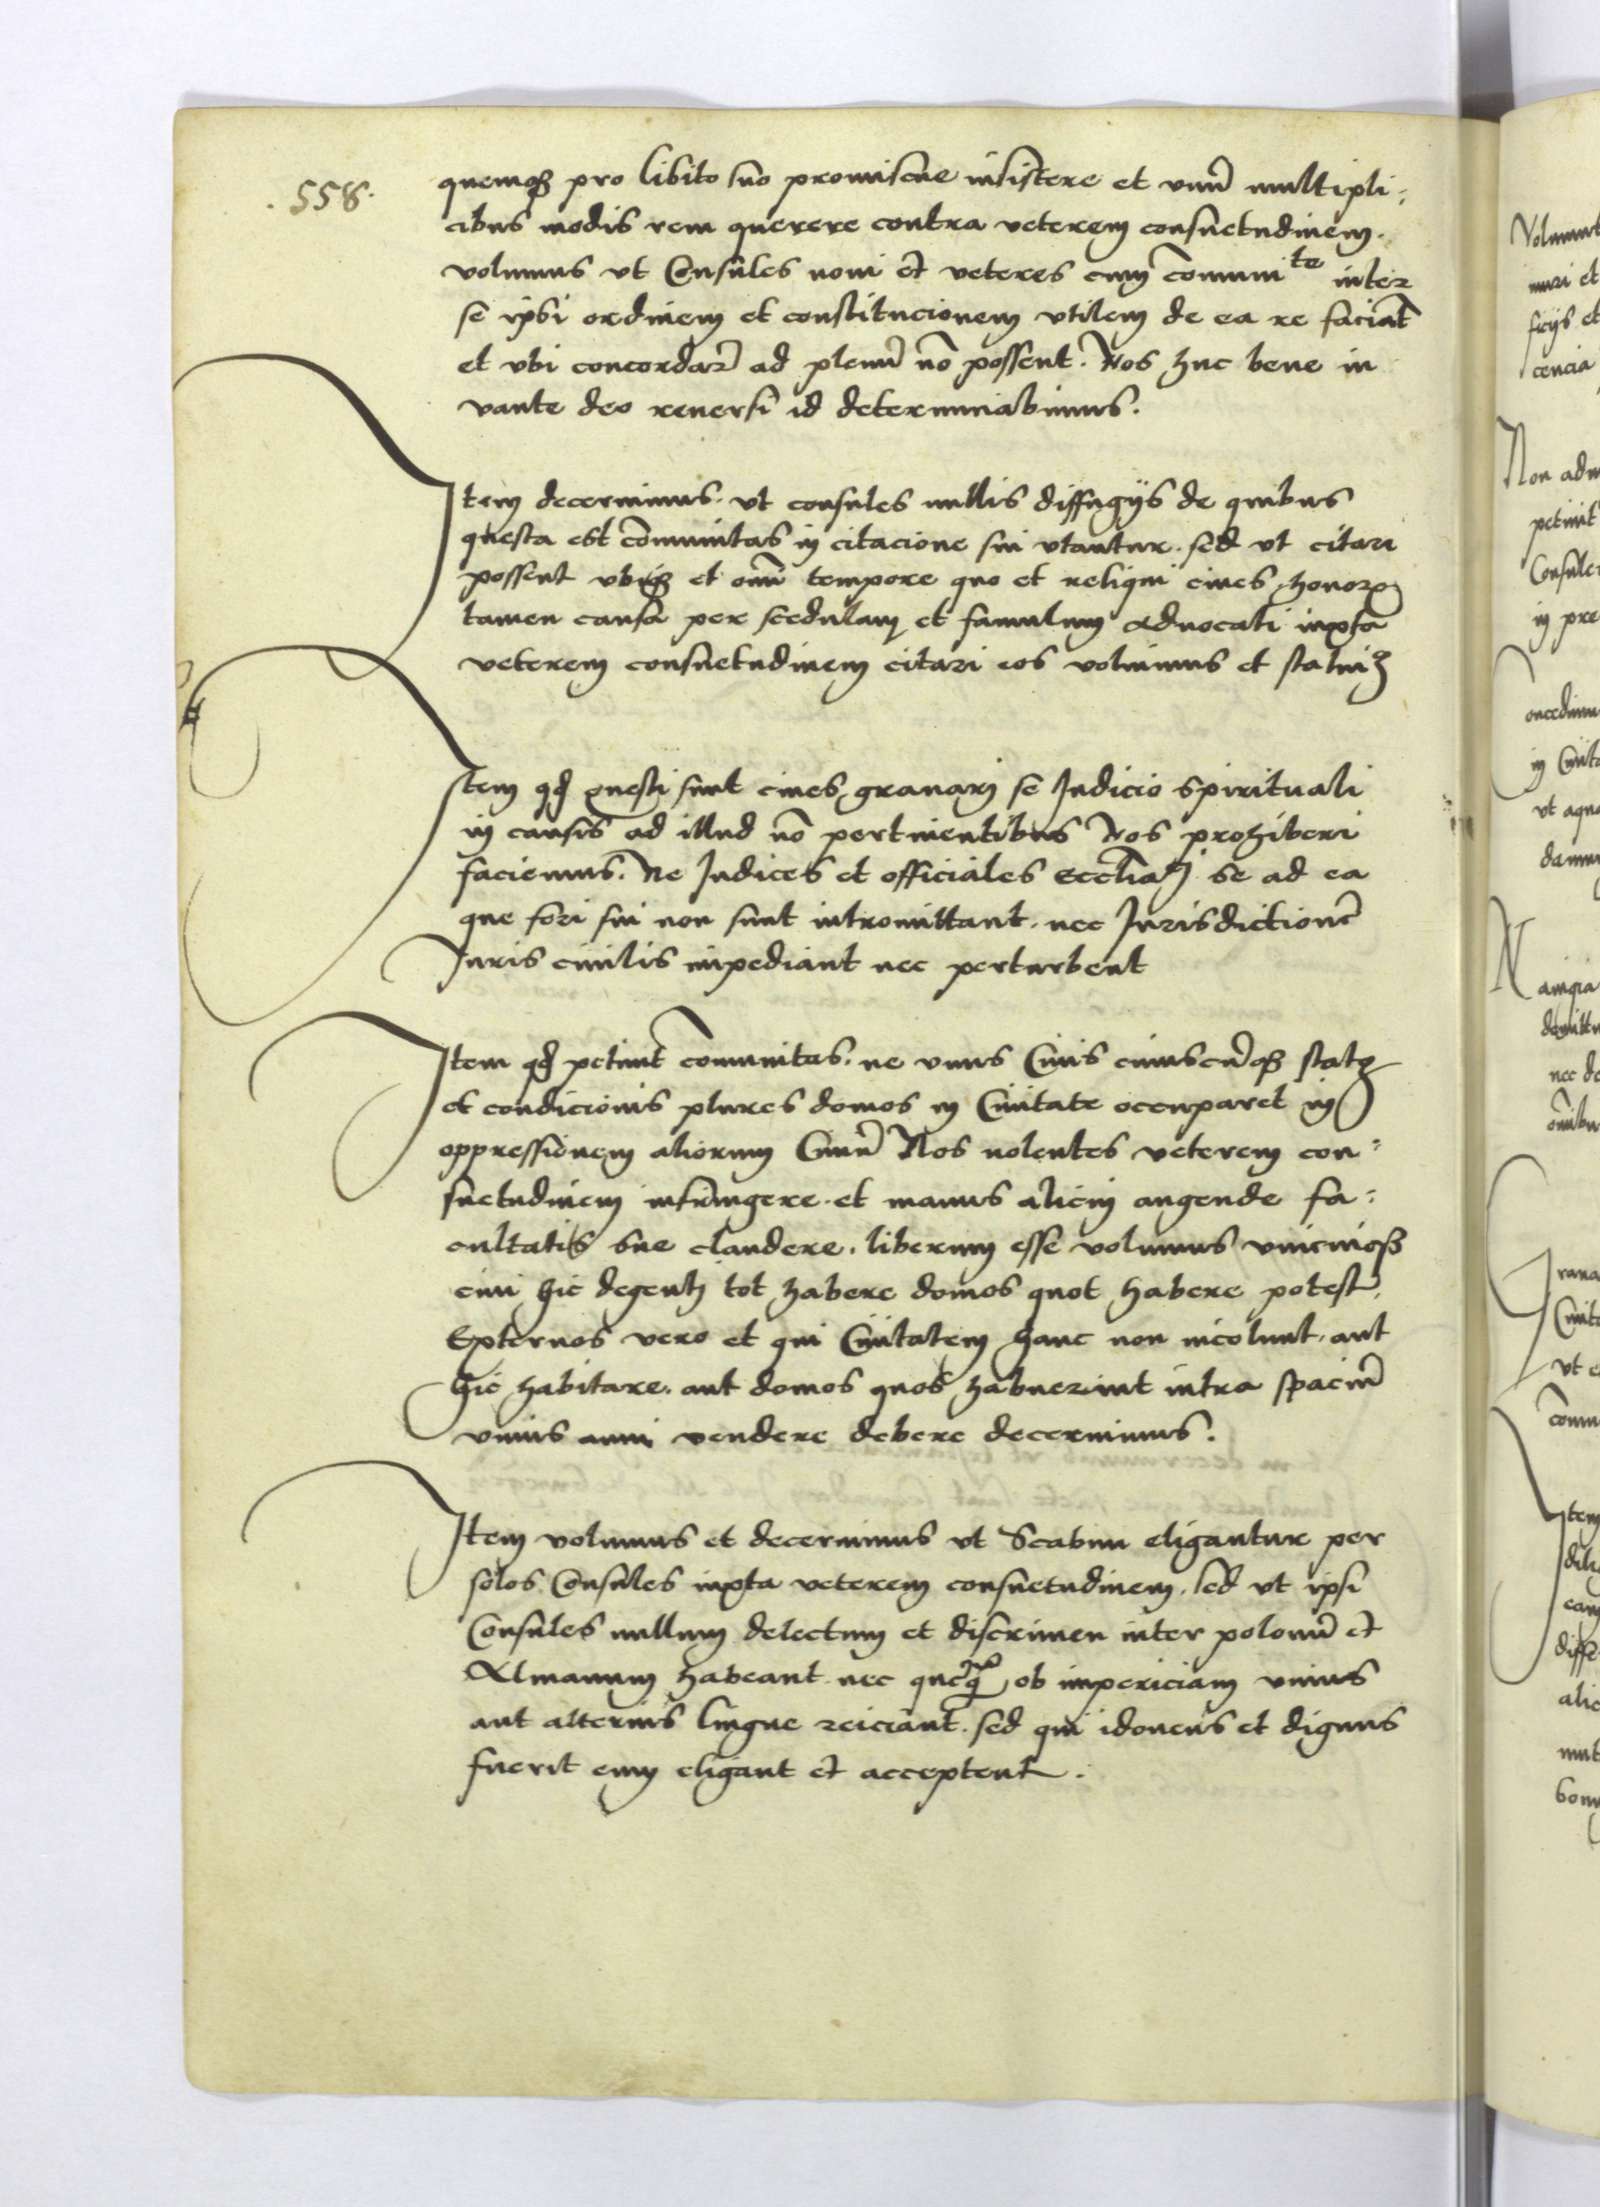 . 558 .
quemqꝫ pro libito suo promiscue insistere et vnū multipli:
cibus modis rem querere contra veterem consuetudinem.
volumus vt Consules noui et veteres cum comunite inter
se ipsi ordinem et constitucionem vtilem de ea re faciāt
et vbi concordar̄ ad plenū nō possent. Nos huc bene iu
vante deo reuersi id determinabimus.
Item decernimus. vt consules nullis diffugijs de quibus
questa est cōmunitas in citacione sui vtantur. sed vt citari
possent vbiqꝫ et omī tempore quo et reliqui ciues honoris
tamen causa per scedulam et famulum aduocati iuxta
veterem consuetudinem citari eos volumus et statuiꝫ
Item qđ questi sunt ciues grauari se Judicio spirituali
in causis ad illud nō pertinentibus Nos prohiberi
faciemus. Ne Judices et officiales eccłiaꝝ se ad ea
que fori sui non sunt intromittant. nec Jurisdictionē
Juris ciuilis impediant nec perturbent
Item qđ petiuit comunitas. ne vnus Ciuis cuiuscūqꝫ status
et condicionis plures domos in Ciuitate occuparet in
oppressionem aliorum Ciuiū Nos nolentes veterem con:
suetudinem infringere. et manus alicui augende fa:
cultatis sue claudere. liberum esse volumus vnicuiqꝫ
ciui hic degenti tot habere domos quot habere potest.
Externos vero et qui Ciuitatem hanc non incolunt. aut
hic habitare. aut domos quos habuerint intra spaciū
vnius anni vendere debere decernimus.
Item volumus et decernimus vt Scabini eligantur per
solos Consules iuxta veterem consuetudinem. sed vt ipsi
Consules nullum delectum et discrimen inter polonū et
Almanum habeant. nec ob impericiam vnius
aut alterius lingue reiciant. sed qui idoneus et dignus
fuerit eum eligant et acceptent.